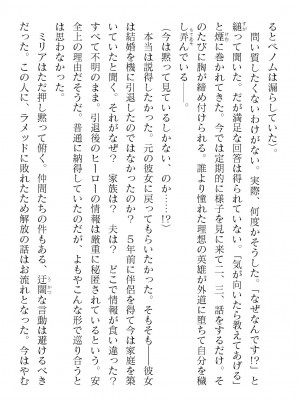 るとベノムは漏らしていた)。
問い質したくないわけがない。実際、何度かそうした。「なぜなんです!?」と
縋って聞いた。だが満足な回答は得られていない。「気が向いたら教えてあげる」
と煙に巻かれてきた。今では定期的に様子を見に来て二、三、話をするだけ。そ
のたびに胸が締め付けられる。誰より憧れた理想の英雄が外道に堕ちて自分を穢
し弄んでいる――。
(今は黙って見ているしかない、のか……!?)
本当は説得したかった。元の彼女に戻ってもらいたかった。そもそも――彼女
は結婚を機に引退したのではなかったのか? 5年前に伴侶を得て今は家庭を築
いていたと聞く。それがなぜ? 家族は? 夫は? どこで情報が食い違った?
すべて不明のまま。引退後のヒーローの情報は厳重に秘匿されているという。安
全上の理由だそうだ。普通に納得していたのだが、よもやこんな形で巡り合うと
は思わなかった。
ミリアはただ押し黙って俯く。仲間たちの件もある、迂闊な言動は避けるべき
だった。この人に、ラメッドに敗れたため解放の話はお流れとなった。今はやむ